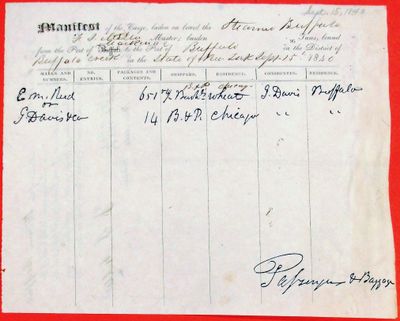 Manifest of the Cargo, laden on board the Steamer Buffalo
Master; burden Tons, bound
from the Port of Mackinac to the Port of Buffalo in the District of
Buffalo Creek in the State of New York Sept. 15
MARKS AND NUMBERS. NO. ENTRIES. PACKAGES AND CONTENTS. SHIPPERS. RESIDENCE. CONSIGNEES. RESIDENCE.
B&P. Chicago
E. M. Reed 651 Wheat J. Davis Buffalo
or
J Davis & Co 14 B&P. Chicago " "
Passengers & Baggage